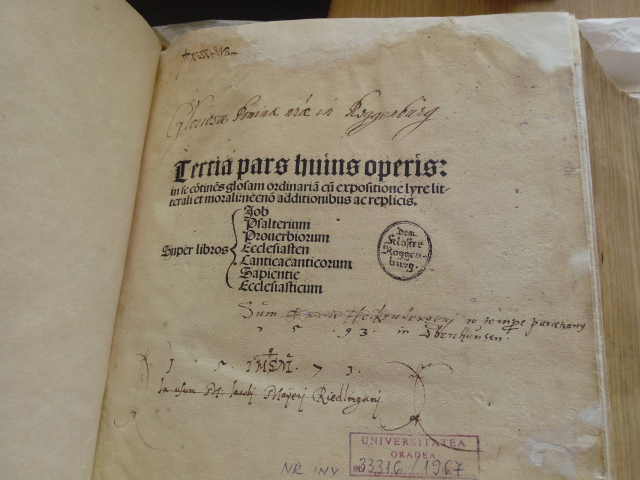 in Roggenburg
Tertia pars huius operis:
in se cōtinēs glosam ordinariā cū expositione lyre lit-
terali et morali: necnō additionibus ac replicis.
Super libros
Job
Psalterium
Prouerbiorum
Ecclesiasten
Canticacanticorum
Sapientie
Ecclesiasticum
Dem
Kloster
Roggen-
burg.
Sum tempe parochany
1 5 . 9 3 . in Ebenhausen.
1 . 5 . 7 3 .
In usum Jacobi Mayeri Riedlingani
UNIVERSITATEA
ORADEA
NR INV 33316/1967